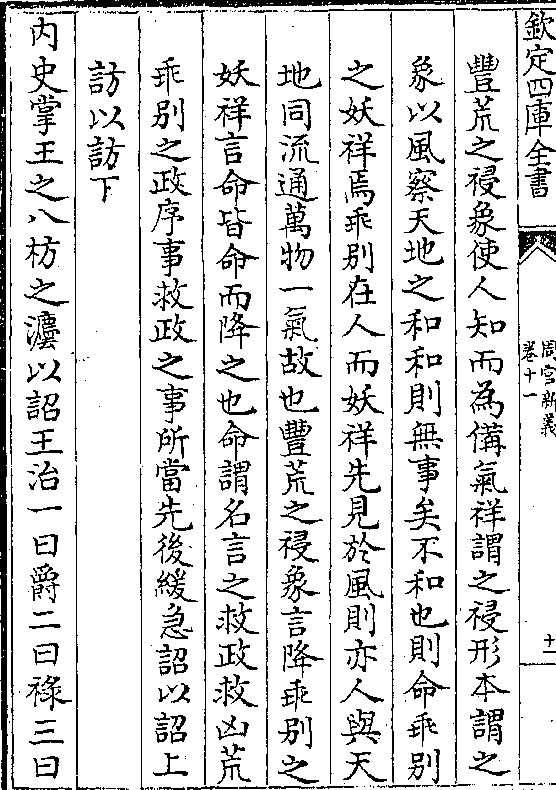 欽定四庫全書
周官新義
卷十一
十一
豐荒之祲象使人知而為備氣祥謂之祲形本謂之
象以風察天地之和和則無事矣不和也則命乖别
之妖祥焉乖别在人而妖祥先見於風則亦人與天
地同流通萬物一氣故也豐荒之祲象言降乖别之
妖祥言命皆命而降之也命謂名言之救政救凶荒
乖别之政序事救政之事所當先後緩急詔以詔上
訪以訪下
内史掌王之八枋之灋以詔王治一曰爵二曰祿三曰